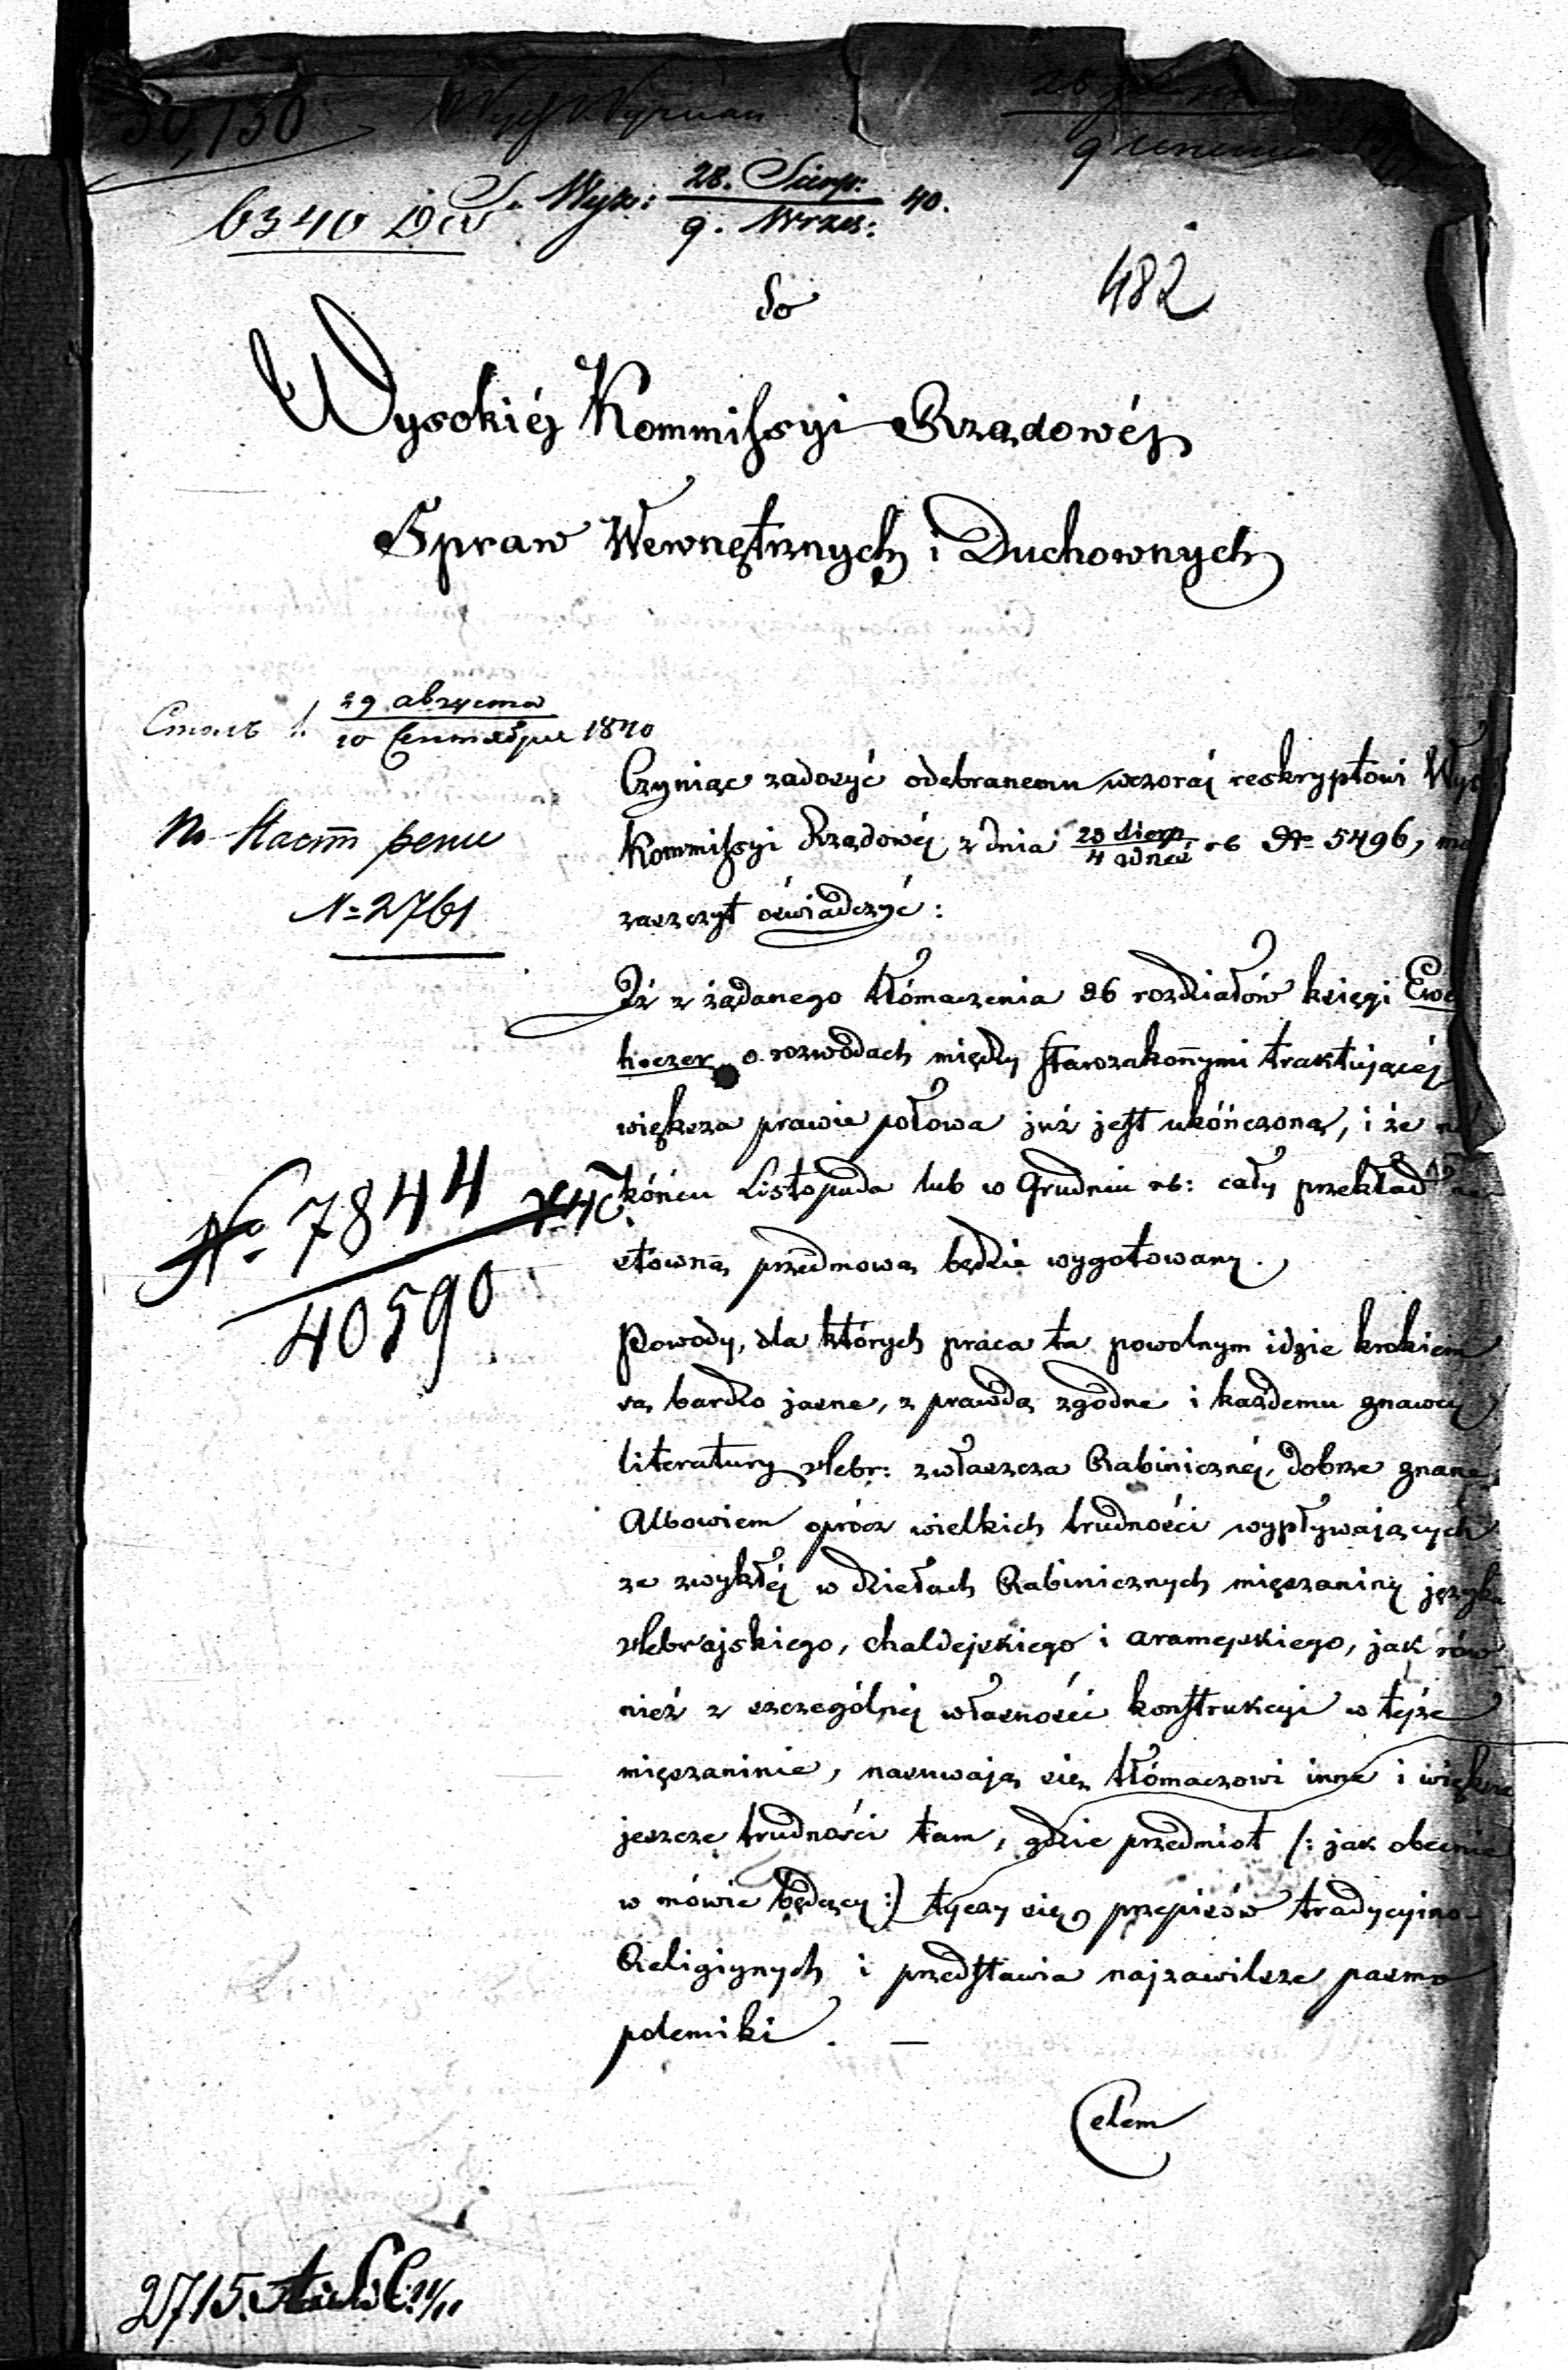 6340
28. Sierp:
9. Wrześ: 40.
482
do
Wysokiéj Kommissyi Rządowéj
Spraw Wewnętrznych i Duchownych
29 августа
10 Сентября 1840
№ 2761
Czyniąc zadosyć odebranemu wczoraj reskryptowi
Kommissyi Rządowéj z dnia 4 № 5496,
zaszczyt oświadczyć:
Iż z żądanego tłómaczenia 36 rozdziałów księgi
hoezer o rozwodach między starozakonnymi traktującéj
większa prawie połowa już jest ukończoną, i że
końcu Listopada lub w Grudniu rb: cały przekład
stówną przedmową będzie wygotowany.
№ 7844
40590
Powody, dla których praca ta powolnym idzie krokiem
są bardzo jasne, z prawdą zgodne i każdemu znawcy
literatury Hebr: zwłaszcza Rabinicznéj, dobrze znane,
Albowiem oprócz wielkich trudności wypływających
ze zwykłéj w dziełach Rabinicznych mięszaniny języka
Hebrajskiego, chaldejskiego i aramejskiego, jak rów-
nież z szczególnéj własności konstrukcyi w tejże
mięszaninie, nasuwają się tłómaczowi inne i większe
jeszcze trudności tam, gdzie przedmiot /: jak obecnie
w mowie będący :/ tyczy się przepisów tradycyino-
Religiynych i przedstawia najzawilsze pasmo
polemiki. —
Celem
2715.